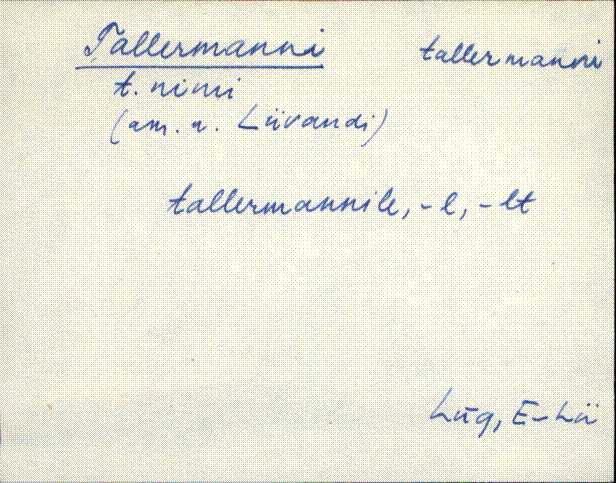 Tallermanni tallermanni
t. nimi
(am. n. Liivandi)
tallermannile, -l, -lt
Lüg, E-Lü